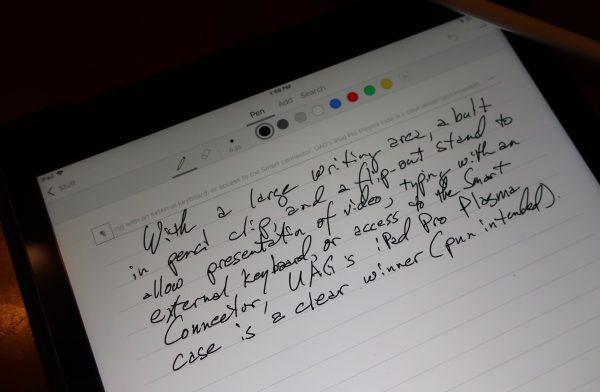 iPad
1:55 PM
Stuff
Pen Add Search
0.35
ng with an external keyboard, or access to the Smart connector, UAG's iPad Pro Plasma case is a clear winner (pun intended).
With a large writing area, a built
in pencil clip, and a flip-out stand to
allow presentation of video, typing with an
external keyboard, or access to the Smart
Connector, UAG's iPad Pro Plasma
case is a clear winner (pun intended).